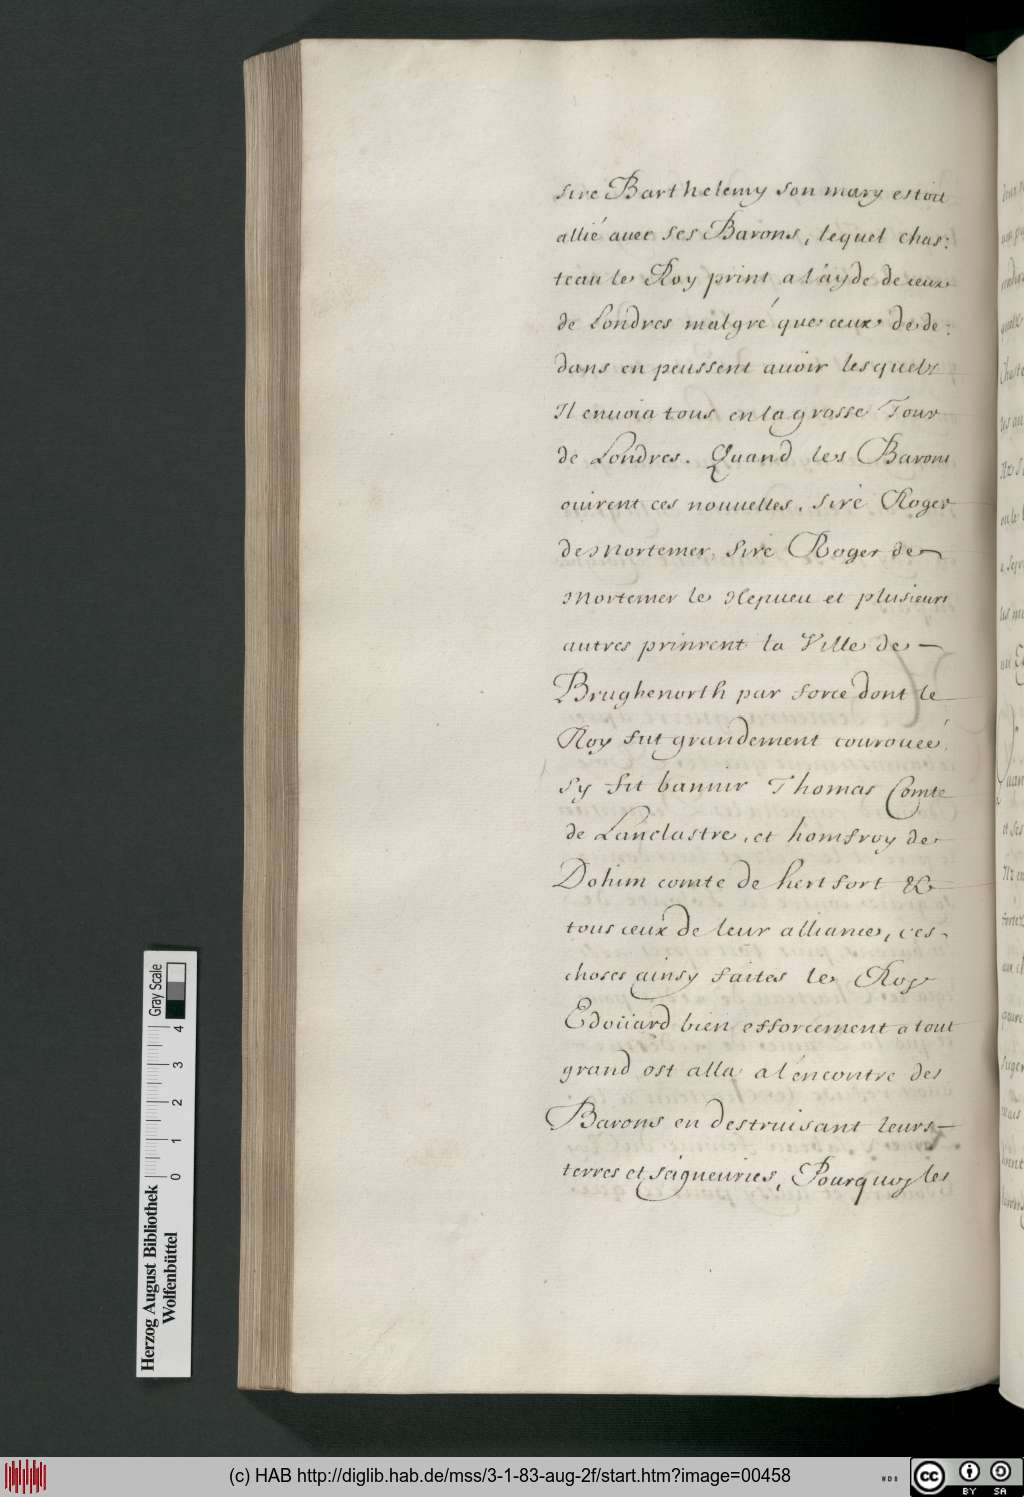 sire Barthelemy son mary estoit
allié auec ses Barons, lequel chas:
teau le Roy print a l'ayde de ceux
de Londres malgré que ceux de de:
dans en peussent auoir lesquels
Il enuoia tous en la grosse Tour
de Londres. Quand les Barons
ouirent ces nouuelles, sire Roger
de Mortemer, sire Roger de
Mortemer le Nepueu et plusieurs
autres prinrent la Ville de —
Brughenorth par force dont le
Roy fut grandement courouéé,
sy fit bannir Thomas Comte
de Lanclastre, et homfroy de
Dohim comte de hertfort &
tous ceux de leur alliance, ces
choses ainsy faites le Roy
Edoüard bien efforcement a tout
grand ost alla a l'encontre des
Barons en destruisant leurs —
terres et seigneuries, Pourquoy les
Herzog August Bibliothek
Wolfenbüttel
0 1 2 3 4
Gray Scale
(c) HAB http://diglib.hab.de/mss/3-1-83-aug-2f/start.htm?image=00458
WDB
cc BY SA